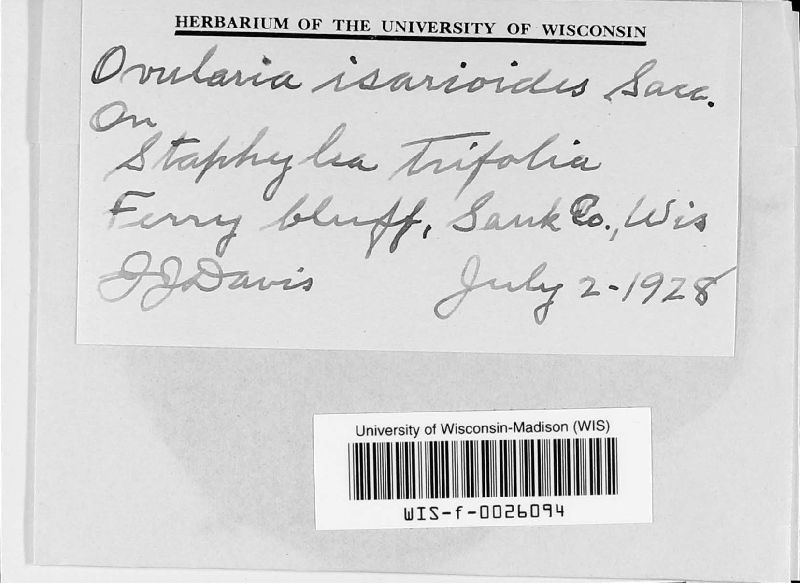 HERBARIUM OF THE UNIVERSITY OF WISCONSIN
Ovularia isarioides Sacc.
On
Staphylea trifolia
Ferry bluff, Sauk Co., Wis
J J Davis July 2-1928
University of Wisconsin-Madison (WIS)
WIS-f-0026094